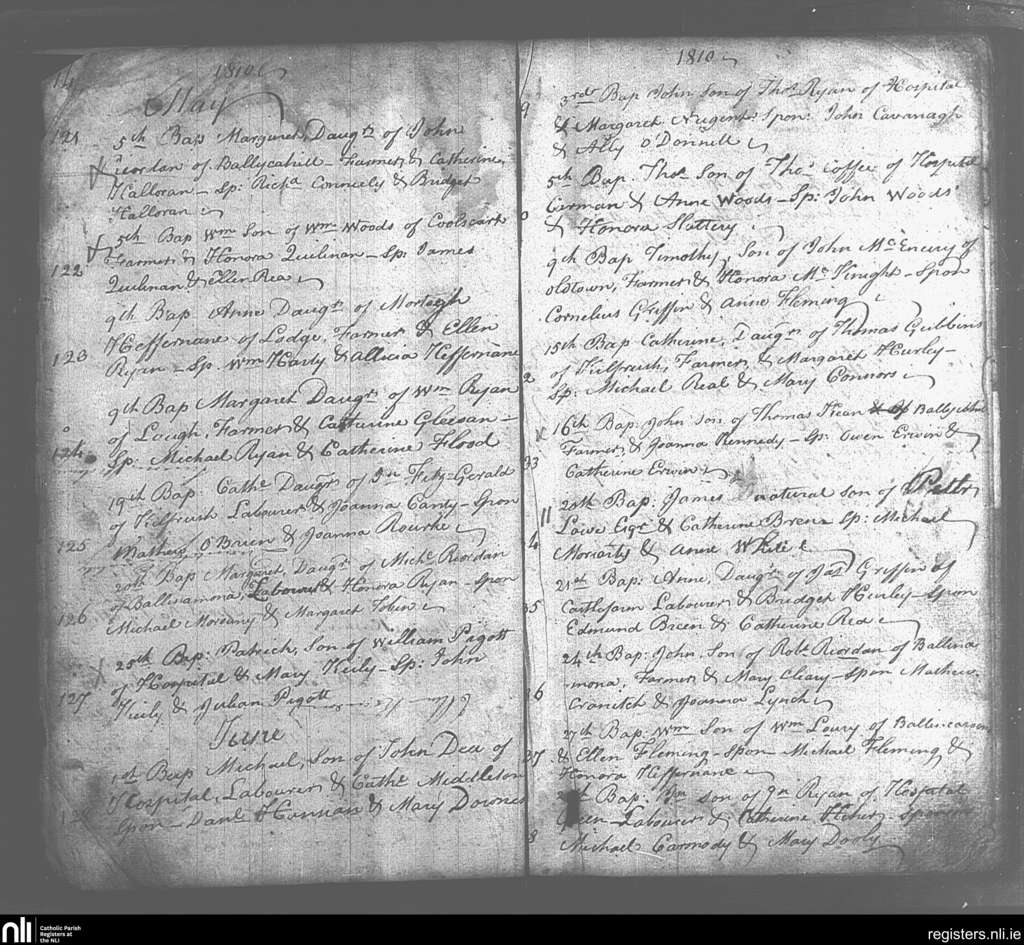 14
1810
May
121
5th Bap Margaret, Daugtr of John
Riordan of Ballycahill - Farmer & Catherine
Halloran - Sp: Richd Conneely & Bridget
Halloran
5th Bap Wm Son of Wm Woods of Coolscart
122
Farmer & Honora Quilinan - Sp: James
Quilinan & Ellen Rea
9th Bap: Anne Daugtr of Mortogh
123
Heffernane of Lodge, Farmer & Ellen
Ryan - Sp. Wm Harty & Allicia Heffernane
9th Bap Margaret Daugtr of Wm Ryan
124
of Lough, Farmer & Catherine Gleesan -
Sp: Michael Ryan & Catherine Flood
19th Bap: Cathe Daugtr of Jn Fitz-Gerald
of Kilfrush Labourer & Joanna Canty - Spon
125
Mathew O'Brien & Joanna Rourke
20th Bap Margaret, Daugtr of Michl Riordan
of Ballinamona, Labourer & Honora Ryan - Spon
126
Michael Moroany & Margaret Tobin
25th Bap: Patrick, Son of William Pigott
of Hospital & Mary Kiely - Sp: John
127
Kiely & Julian Pigott
June
1st Bap Michael, Son of John Dea of
Hospital, Labourer & Cathe Middleton
128
Spon - Danl Hannan & Mary Downes
1810
9
3rd Bap John Son of Thos Ryan of Hospital
& Margaret Nugent: Spon: John Cavanagh
& Ally O'Donnell
5th Bap: Thos Son of Thos Coffee of Hospital
Carman & Anne Woods - Sp: John Woods
0
& Honora Slattery
9th Bap Timothy, Son of John McEnery of
oldtown, Farmer & Honora McKnight - Spon
Cornelius Griffin & Anne Fleming
15th Bap Catherine, Daugtr of Thomas Gubbins
of Kilfrush, Farmer, & Margaret Hurley -
2
Sp: Michael Real & Mary Connors
16th Bap: John son of Thomas Kean of
Farmer, & Joanna Kennedy - Sp: Owen Erwin &
33
Catherine Erwin
20th Bap: James natural son of Peter
Lowe Esqr & Catharine Breen Sp: Michael
4
Moriarty & Anne White
21st Bap: Anne, Daugtr of Jas Griffin of
Castlefarm Labourer & Bridget Hurley - Spon
35
Edmund Breen & Catherine Rea
24th Bap: John, Son of Robt Riordan of Ballina
mona, Farmer & Mary Cleary - Spon Mathew
36
Cranitch & Joanna Lynch
27th Bap: Wm Son of Wm Loury of
37
& Ellen Fleming - Spon - Michael Fleming &
Honora Heffernane
Bap: Jn son of Jn Ryan of Hospital
Labourer & Catherine Sponsors
8
Michael Carmody & Mary Dooly
nli
Catholic Parish
Registers at
the NLI
registers.nli.ie